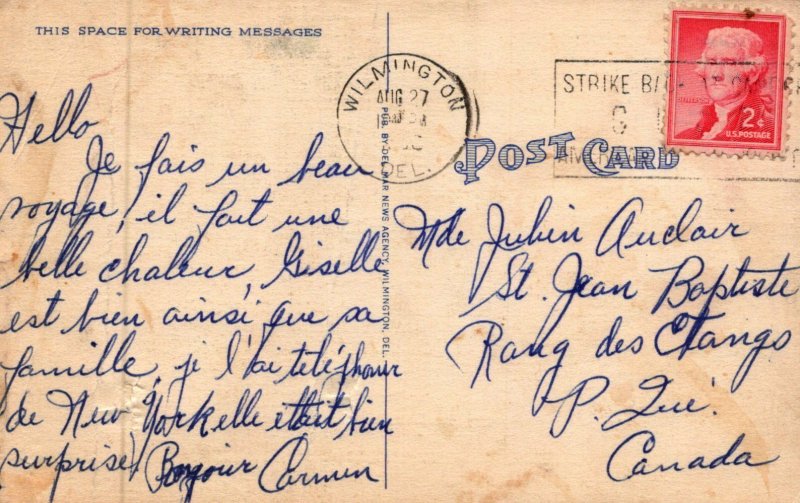 THIS SPACE FOR WRITING MESSAGES
Hello
Je fais un beau
voyage, il fait une
belle chaleur, Giselle
est bien ainsi que sa
famille, je l'ai téléphoner
de New York elle était bien
surprise, Bonjour Carmen
PUB. BY DEL MAR NEWS AGENCY, WILMINGTON, DEL.
WILMINGTON
AUG 27
DEL.
STRIKE BACK AT
POST CARD
JEFFERSON
2¢
U.S. POSTAGE
Mde Jubin Auclair
St. Jean Baptiste
Rang des Etangs
P. Qué.
Canada